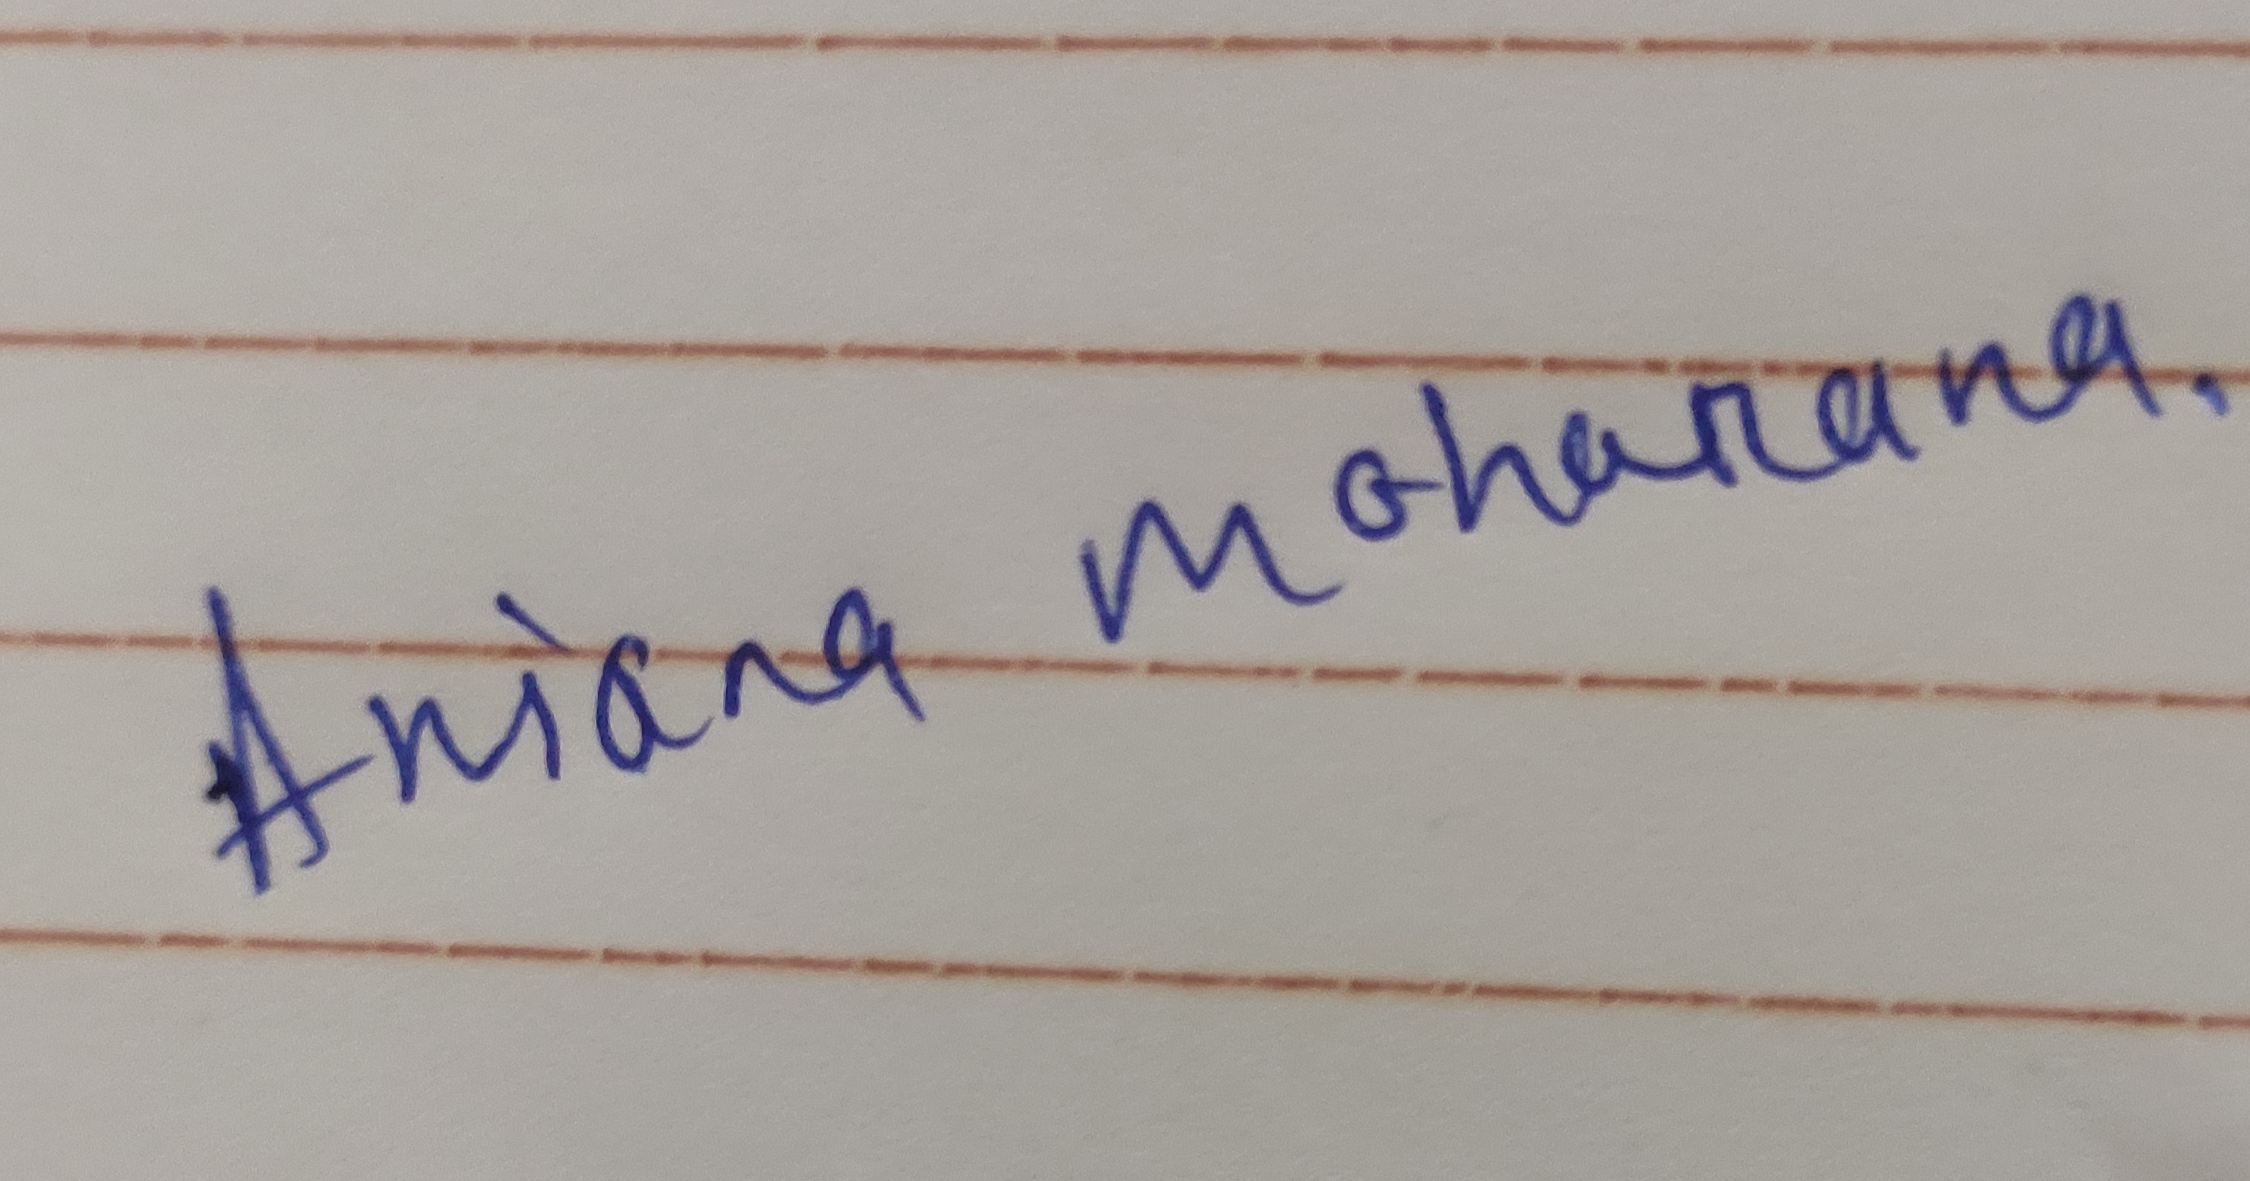 Aniana Moharana.